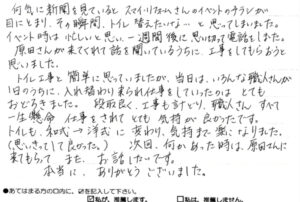 何気に新聞を見ていると、スマイルかんさんのイベントのチラシが
目にとまり、その瞬間、トイレ替えたいな…と思ってしまいました。
イベント時は忙しいと思い、一週間後に思い切って電話をしました。
原田さんが来てくれて話を聞いているうちに、工事をしてもらおうと
思いました。
トイレ工事と簡単に思っていましたが、当日は、いろんな職人さんが
1日のうちに、入れ替わり来られ仕事をしていったのは とても
おどろきました。 段取良く、工事も すすみ、職人さん すべて
一生懸命 仕事をされてとても 気持が良かったです。
トイレも、和式→洋式に 変わり、気持まで 楽になりました。
(思いきってして良かった。) 次回、何かあった時は、原田さんに
来てもらって また、お話ししたいです。
本当に、ありがとうございました。
●あてはまる方の□内に、✓を記入して下さい。
☑私が、推薦します。 □私は、推薦しません。